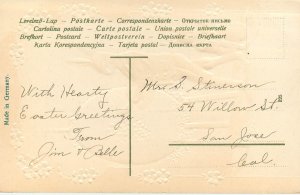 Levelező-Lap – Postkarte – Correspondenzkarte – Открытое письмо
Cartolina postale – Carte postale – Union postale universelle
Brefkort – Postcard – Weltpostverein – Dopisnice – Briefkaart
Karta Korespondencyjna – Tarjeta postal – Дописна карта
Made in Germany.
With Hearty
Easter Greetings
From
Jim & Belle
Mrs. S. Stinerson
54 Willow St.
San Jose
Cal.